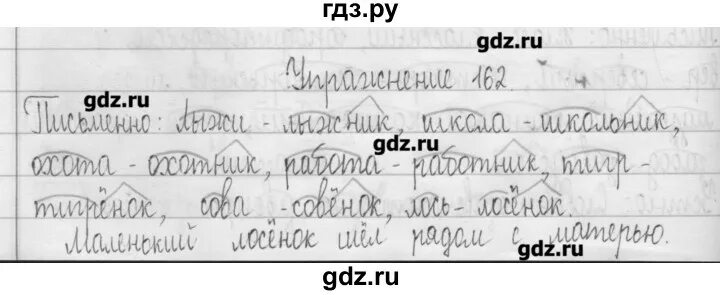 гдз.ру
gdz.ru
Упражнение 162.
gdz.ru
Письменно: Лыжи лыжник, школа - школьник,
gdz.ru
охота - охотник, работа - работник, тигр -
тигрёнок, сова - совёнок, лось - лосёнок.
Маленький лосёнок шёл рядом с матерью.
gdz.ru
gdz.ru